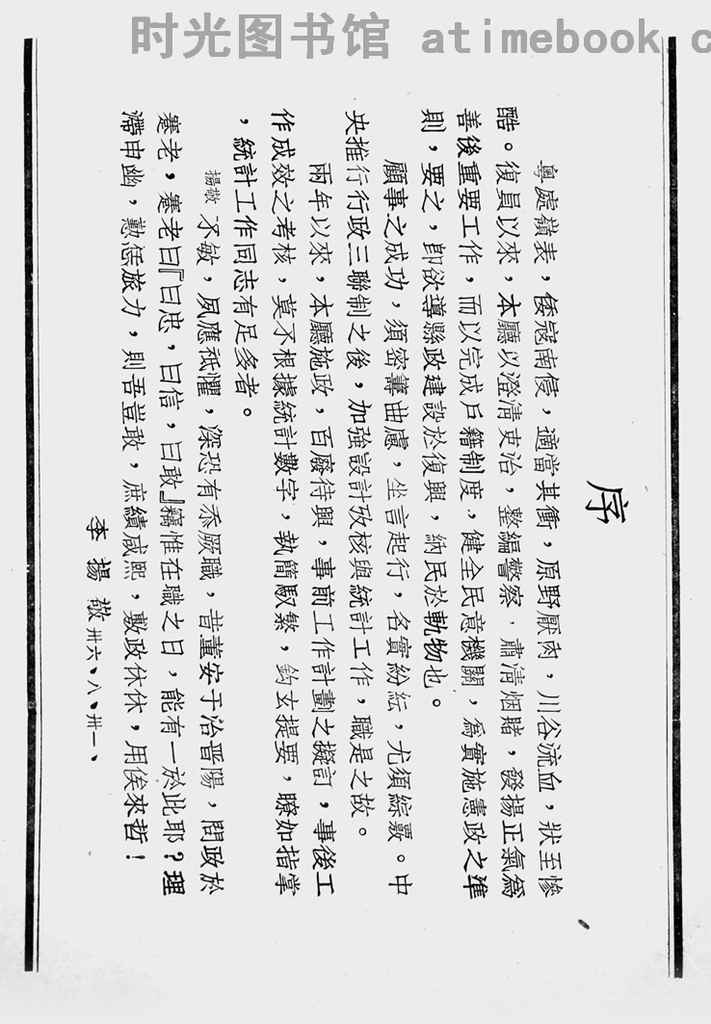 时光图书馆 atimebook c
序
粵處嶺表，倭寇南侵，適當其衝，原野厭肉，川谷流血，狀至慘
酷。復員以來，本廳以澄清吏治，整編警察，肅清烟賭，發揚正氣爲
善後重要工作，而以完成戶籍制度，健全民意機關，爲實施憲政之準
則，要之，卽欲導縣政建設於復興，納民於軌物也。
顧事之成功，須密籌曲慮，坐言起行，名實紛紜，尤須綜覈。中
央推行行政三聯制之後，加強設計攷核與統計工作，職是之故。
兩年以來，本廳施政，百廢待興，事前工作計劃之擬訂，事後工
作成效之考核，莫不根據統計數字，執簡馭繁，鈎玄提要，瞭如指掌
，統計工作同志有足多者。
揚敬不敏，夙應祇懼，深恐有忝厥職，昔董安于治晋陽，問政於
蹇老，蹇老曰『曰忠，曰信，曰敢』竊惟在職之日，能有一於此耶？理
滯申幽，懃恁旅力，則吾豈敢，庶績咸熙，敷政休休，用俟來哲！
李揚敬 卅六、八、卅一、